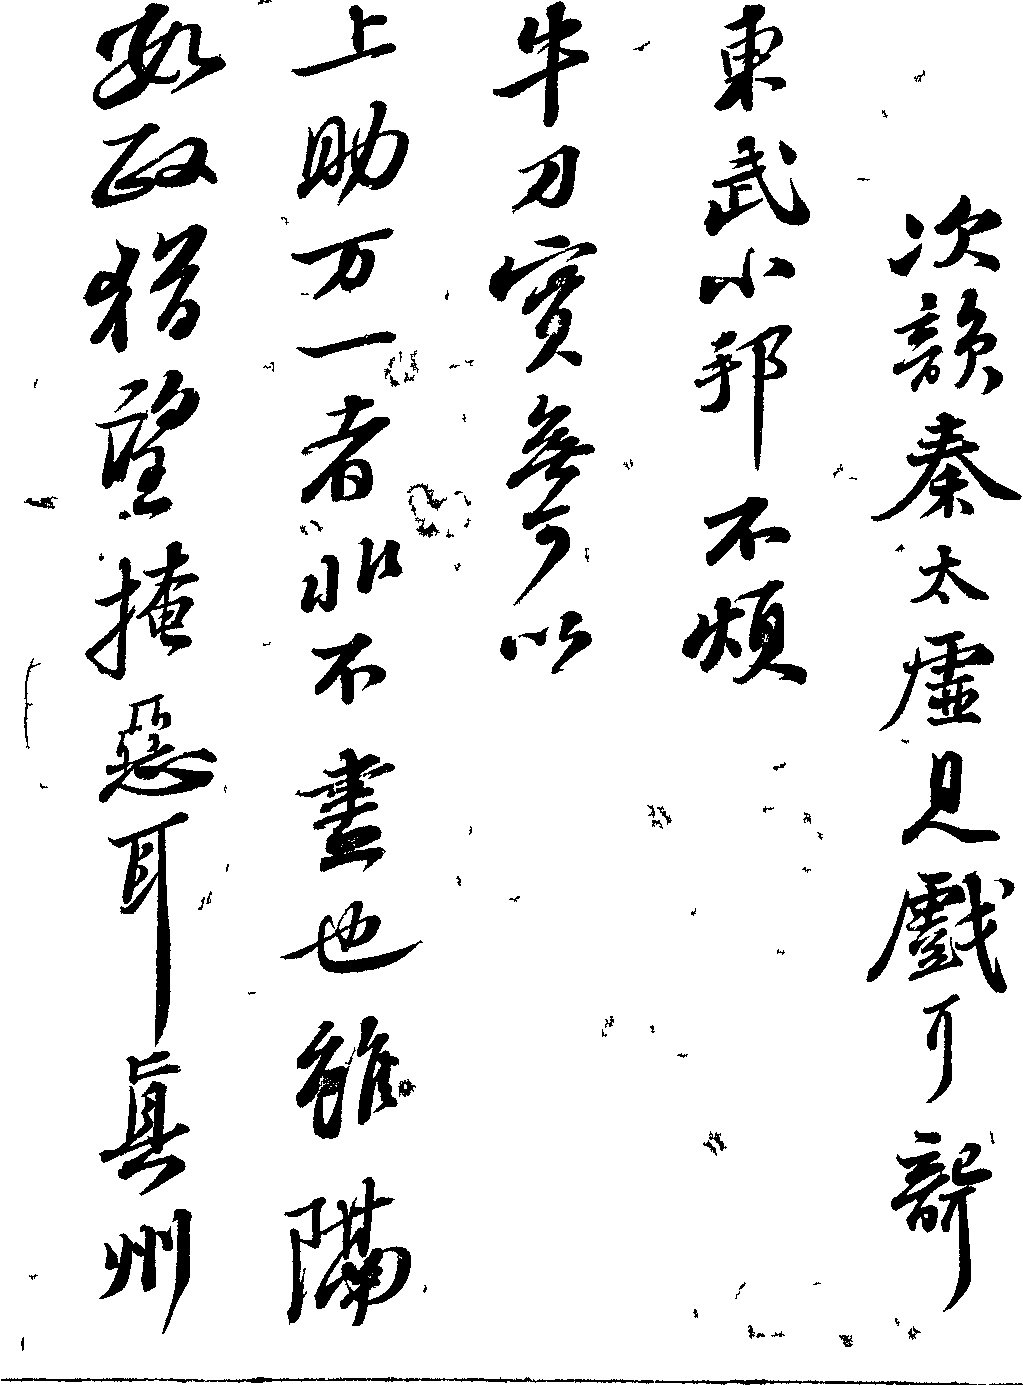 次韻秦太虛見戲耳聾
東武小邦不煩
牛刀實無可以
上助万一者非不盡也雖隔
數政猶望掩惡耳真州